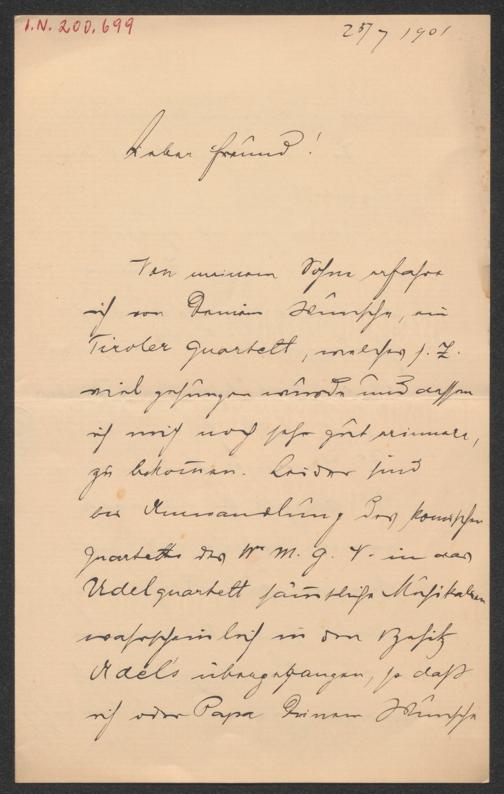 I.N. 200.699
25/7 1901
Lieber Freund!
Von meinem Sohne erfahre
ich von Deinem Wunsche, ein
Tiroler Quartett, welches s. Z.
viel gesungen wurde und dessen
ich mich noch sehr gut erinnere,
zu bekommen. Leider sind
bei Umwandlung des komischen
Quartetts des Wr M. G. V. in das
Udelquartett sämtliche Musikalien
wahrscheinlich in den Besitz
Udel's übergegangen, so daß
ich oder Papa Deinem Wunsche